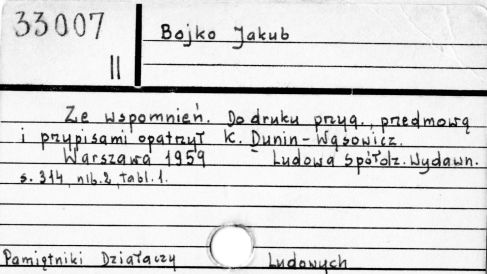 33007
II
Bojko Jakub
Ze wspomnień. Do druku przyg., przedmową
i przypisami opatrzył K. Dunin-Wąsowicz.
Warszawa 1959 Ludowa Spółdz. Wydawn.
s. 314, nlb. 2, tabl. 1.
Pamiętniki Działaczy Ludowych